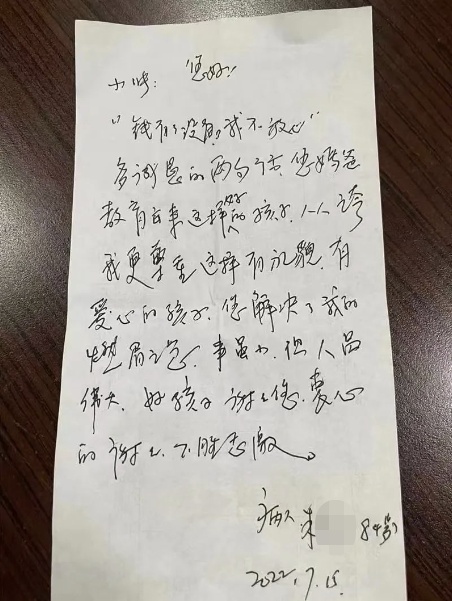 小陆: 您好!
"钱有了没有?我不放心"
多诚恳的两句话,您妈爸
教育出来这样好的孩子,人人夸
我更尊重这样有礼貌,有
爱心的孩子,您解决了我的
燃眉之急,事虽小,但人品
伟大,好孩子谢谢您,衷心
的谢谢,不胜感激。
病人 朱 84岁
2022.7.15.